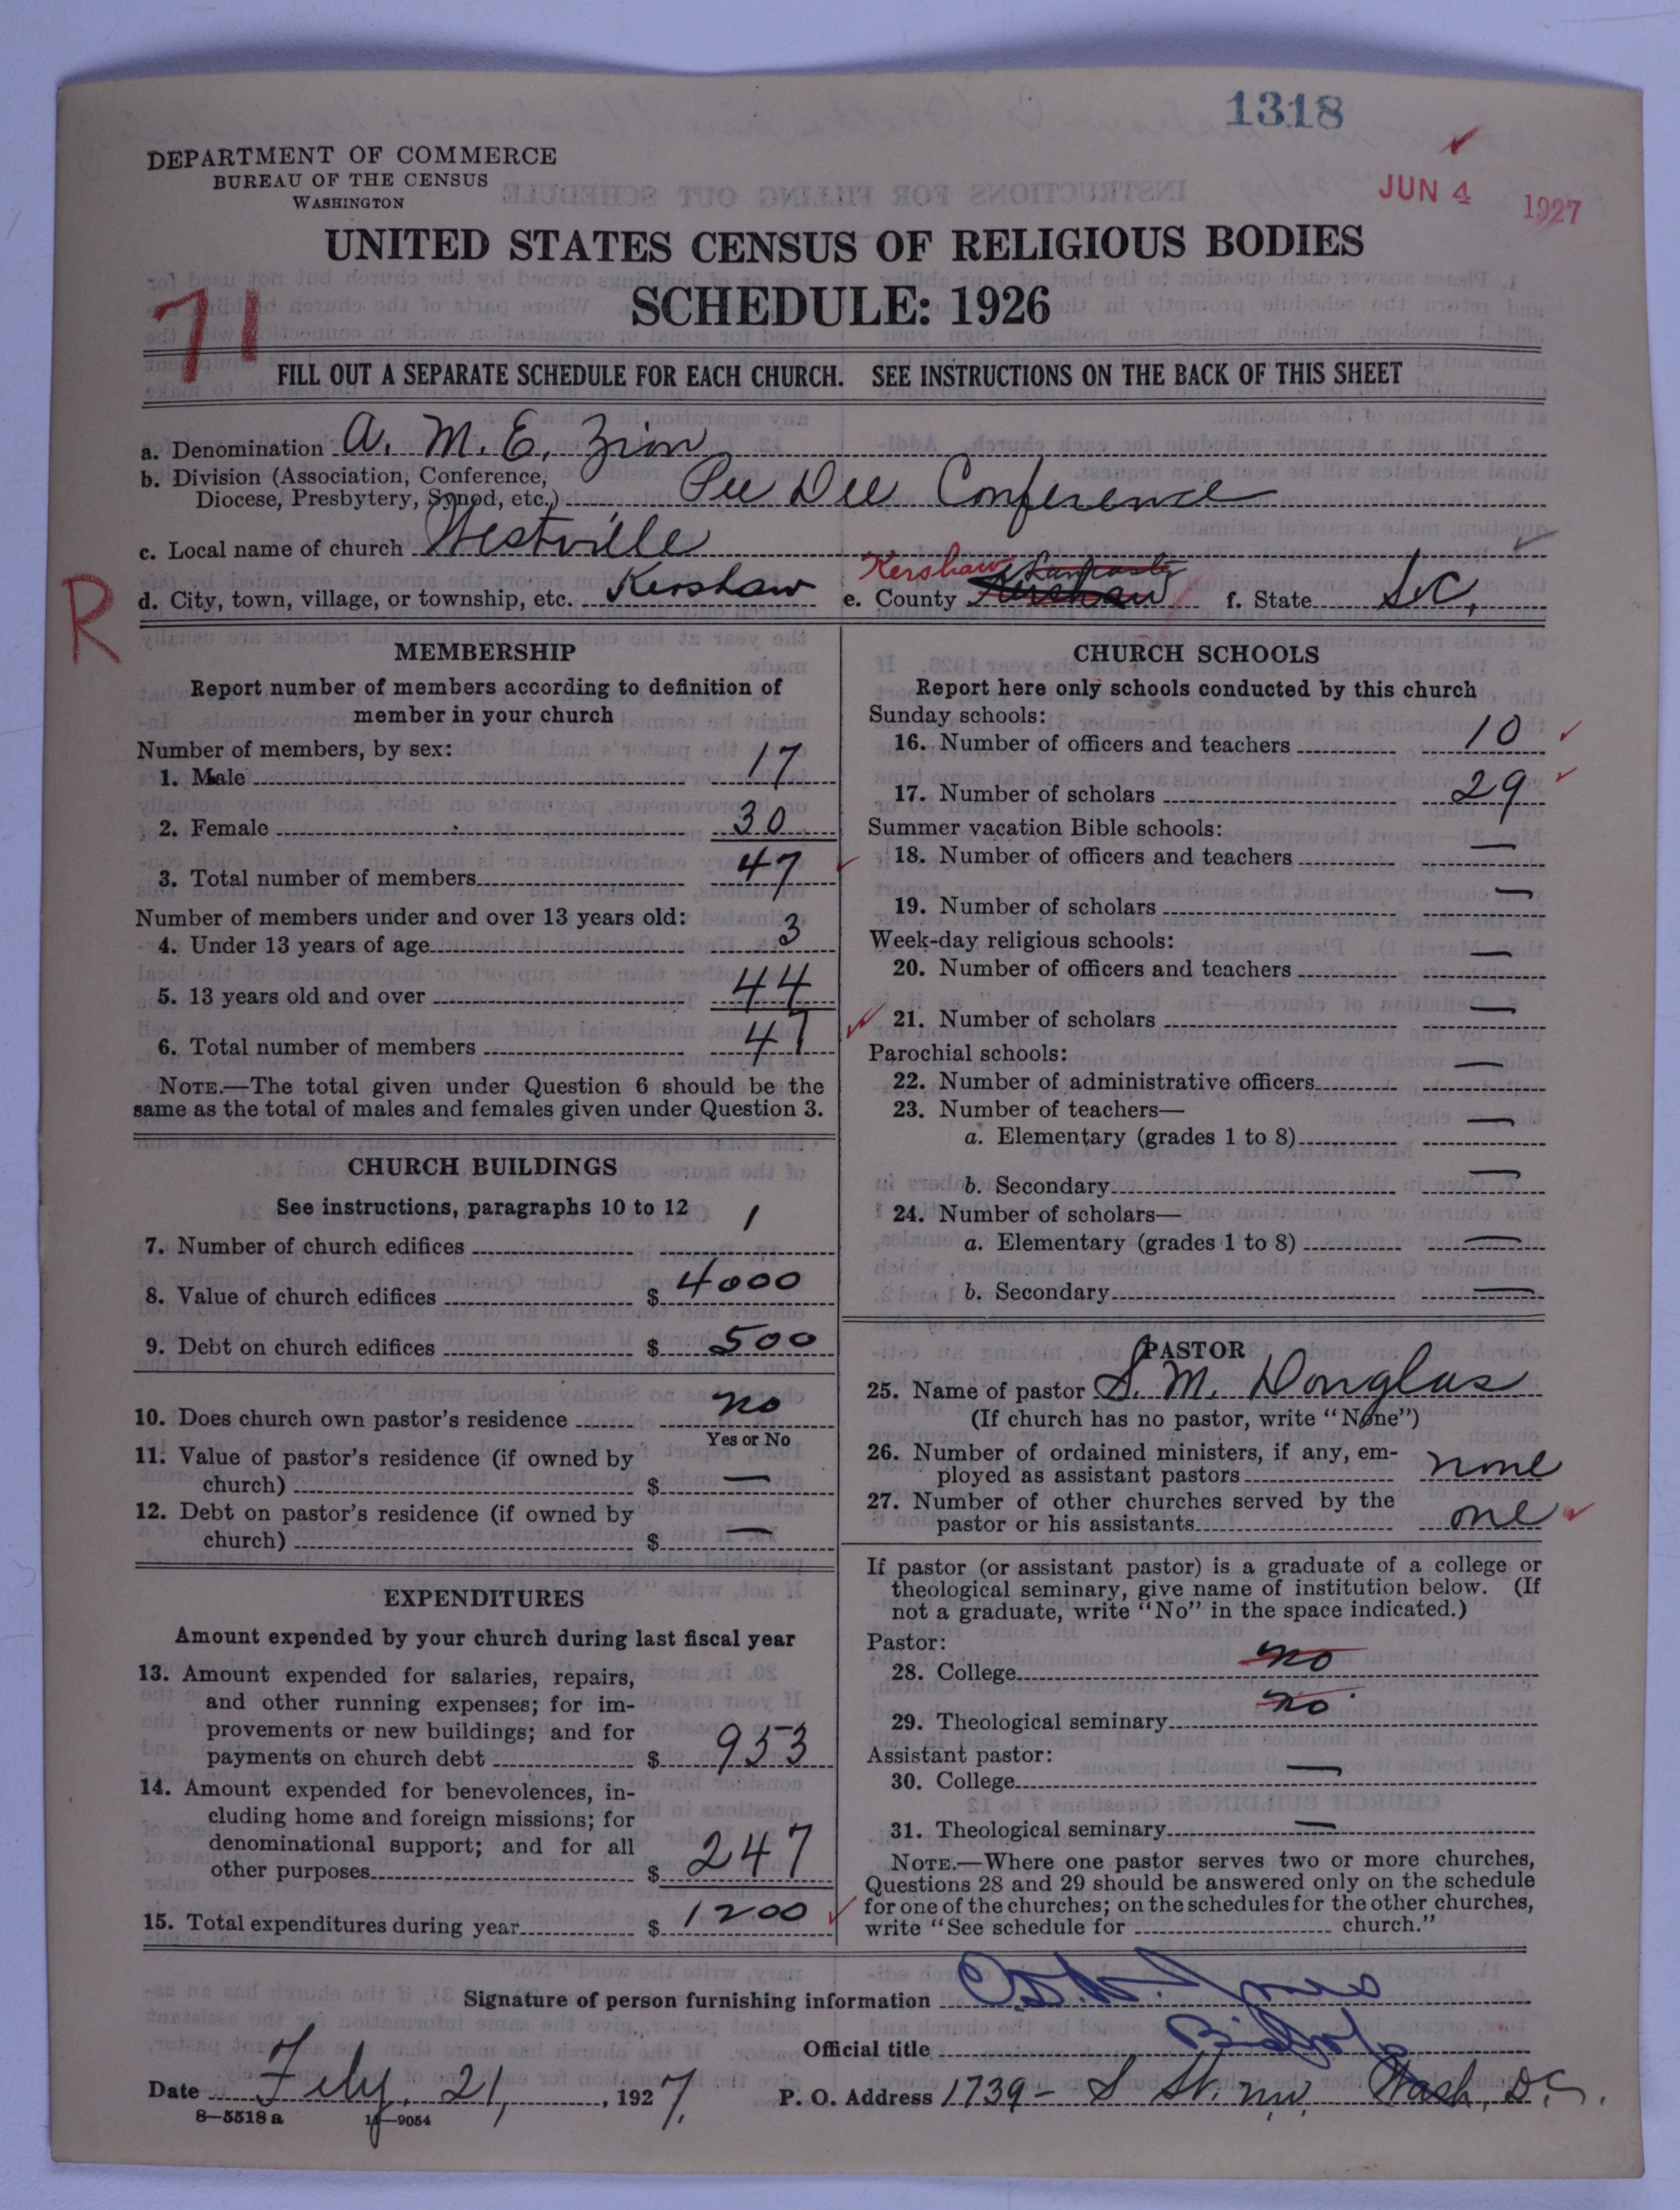 1318
JUN 4 1927
DEPARTMENT OF COMMERCE
BUREAU OF THE CENSUS
WASHINGTON
UNITED STATES CENSUS OF RELIGIOUS BODIES
SCHEDULE: 1926
71
FILL OUT A SEPARATE SCHEDULE FOR EACH CHURCH. SEE INSTRUCTIONS ON THE BACK OF THIS SHEET
a. Denomination A. M. E. Zion
b. Division (Association, Conference,
Diocese, Presbytery, Synod, etc.) Pee Dee Conference
c. Local name of church Westville
R
d. City, town, village, or township, etc. Kershaw e. County Kershaw Lancaster Kershaw f. State S.C.
MEMBERSHIP
Report number of members according to definition of
member in your church
Number of members, by sex:
1. Male 17
2. Female 30
3. Total number of members 47
Number of members under and over 13 years old:
4. Under 13 years of age 3
5. 13 years old and over 44
6. Total number of members 47
NOTE.—The total given under Question 6 should be the
same as the total of males and females given under Question 3.
CHURCH BUILDINGS
See instructions, paragraphs 10 to 12
7. Number of church edifices 1
8. Value of church edifices $ 4000
9. Debt on church edifices $ 500
10. Does church own pastor's residence no
Yes or No
11. Value of pastor's residence (if owned by
church) $ —
12. Debt on pastor's residence (if owned by
church) $ —
EXPENDITURES
Amount expended by your church during last fiscal year
13. Amount expended for salaries, repairs,
and other running expenses; for im-
provements or new buildings; and for
payments on church debt $ 953
14. Amount expended for benevolences, in-
cluding home and foreign missions; for
denominational support; and for all
other purposes $ 247
15. Total expenditures during year $ 1200
CHURCH SCHOOLS
Report here only schools conducted by this church
Sunday schools:
16. Number of officers and teachers 10
17. Number of scholars 29
Summer vacation Bible schools:
18. Number of officers and teachers —
19. Number of scholars —
Week-day religious schools:
20. Number of officers and teachers —
21. Number of scholars —
Parochial schools:
22. Number of administrative officers —
23. Number of teachers—
a. Elementary (grades 1 to 8) —
b. Secondary —
24. Number of scholars—
a. Elementary (grades 1 to 8) —
b. Secondary —
PASTOR
25. Name of pastor S. M. Douglas
(If church has no pastor, write "None")
26. Number of ordained ministers, if any, em-
ployed as assistant pastors none
27. Number of other churches served by the
pastor or his assistants one
If pastor (or assistant pastor) is a graduate of a college or
theological seminary, give name of institution below. (If
not a graduate, write "No" in the space indicated.)
Pastor:
28. College no
29. Theological seminary no
Assistant pastor:
30. College —
31. Theological seminary —
NOTE.—Where one pastor serves two or more churches,
Questions 28 and 29 should be answered only on the schedule
for one of the churches; on the schedules for the other churches,
write "See schedule for church."
Signature of person furnishing information Jones
Official title Bishop
Date Feby. 21, 1927. P. O. Address 1739 - S St. nw. Wash, D.C.
8—5518a 11—9054